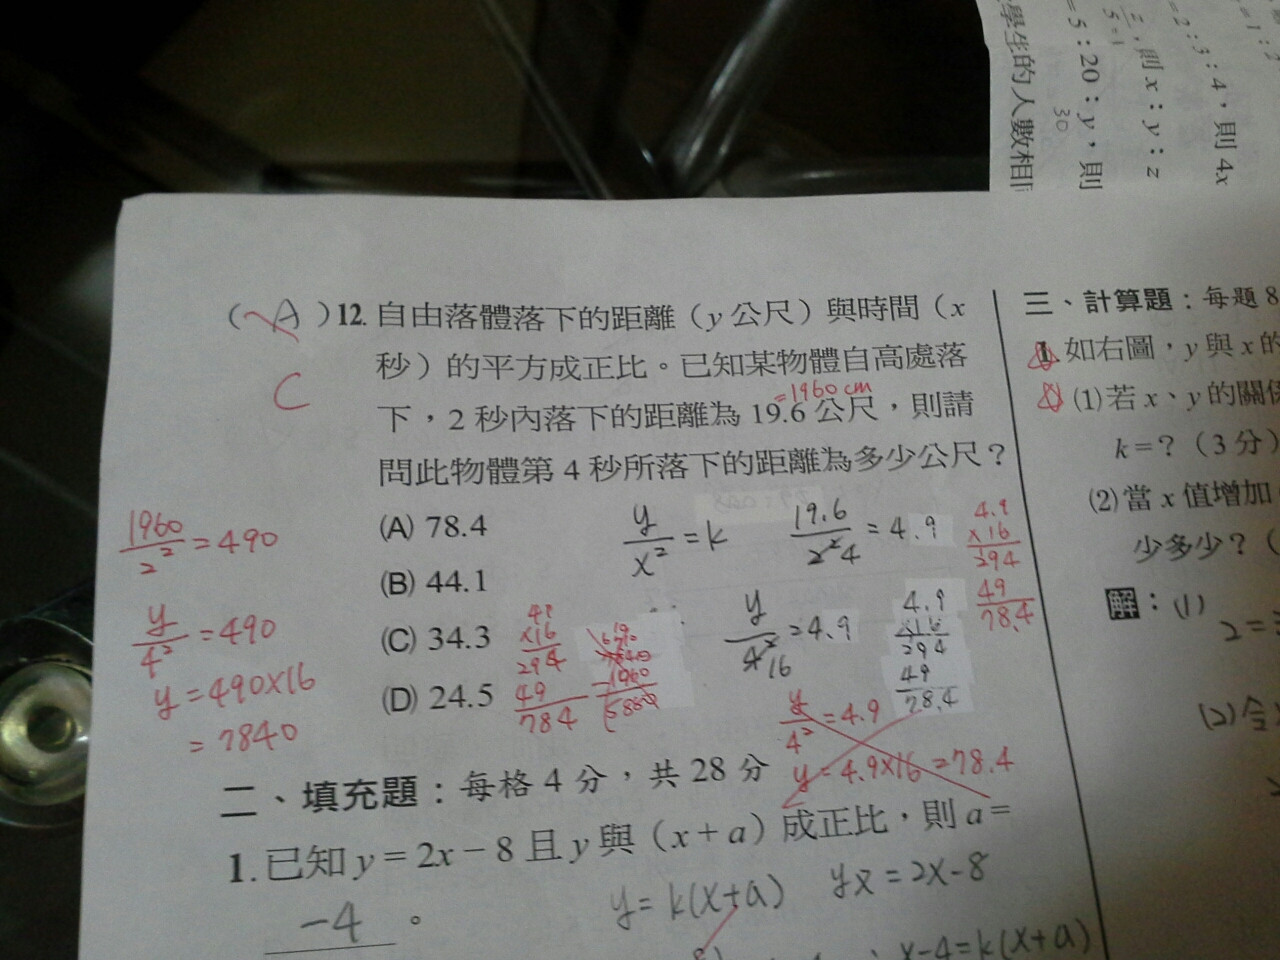 學生的人數相
= 5 : 20 : y，則
30
則 x : y : z
= 2 : 3 : 4，則 4x
( A ) 12. 自由落體落下的距離（y 公尺）與時間（x
秒）的平方成正比。已知某物體自高處落
= 1960 cm
下，2 秒內落下的距離為 19.6 公尺，則請
問此物體第 4 秒所落下的距離為多少公尺？
C
(A) 78.4
(B) 44.1
(C) 34.3
(D) 24.5
1960/2² = 490
y/4² = 490
y = 490×16
= 7840
y/x² = k
19.6/2² 4 = 4.9
y/4² 16 = 4.9
4.9
×16
294
49
78.4
4.9
×16
294
49
78.4
49
×16
294
49
784
7840
1960
y/4² = 4.9
y = 4.9×16 = 78.4
二、填充題：每格 4 分，共 28 分
1. 已知 y = 2x − 8 且 y 與（x + a）成正比，則 a =
-4 。
y = k(x+a)
yx = 2x-8
x-4 = k(x+a)
三、計算題：每題 8
1. 如右圖，y 與 x 的
(1) 若 x、y 的關係
k = ?（3 分）
(2) 當 x 值增加
少多少？（
解：(1)
2 =
(2) 令